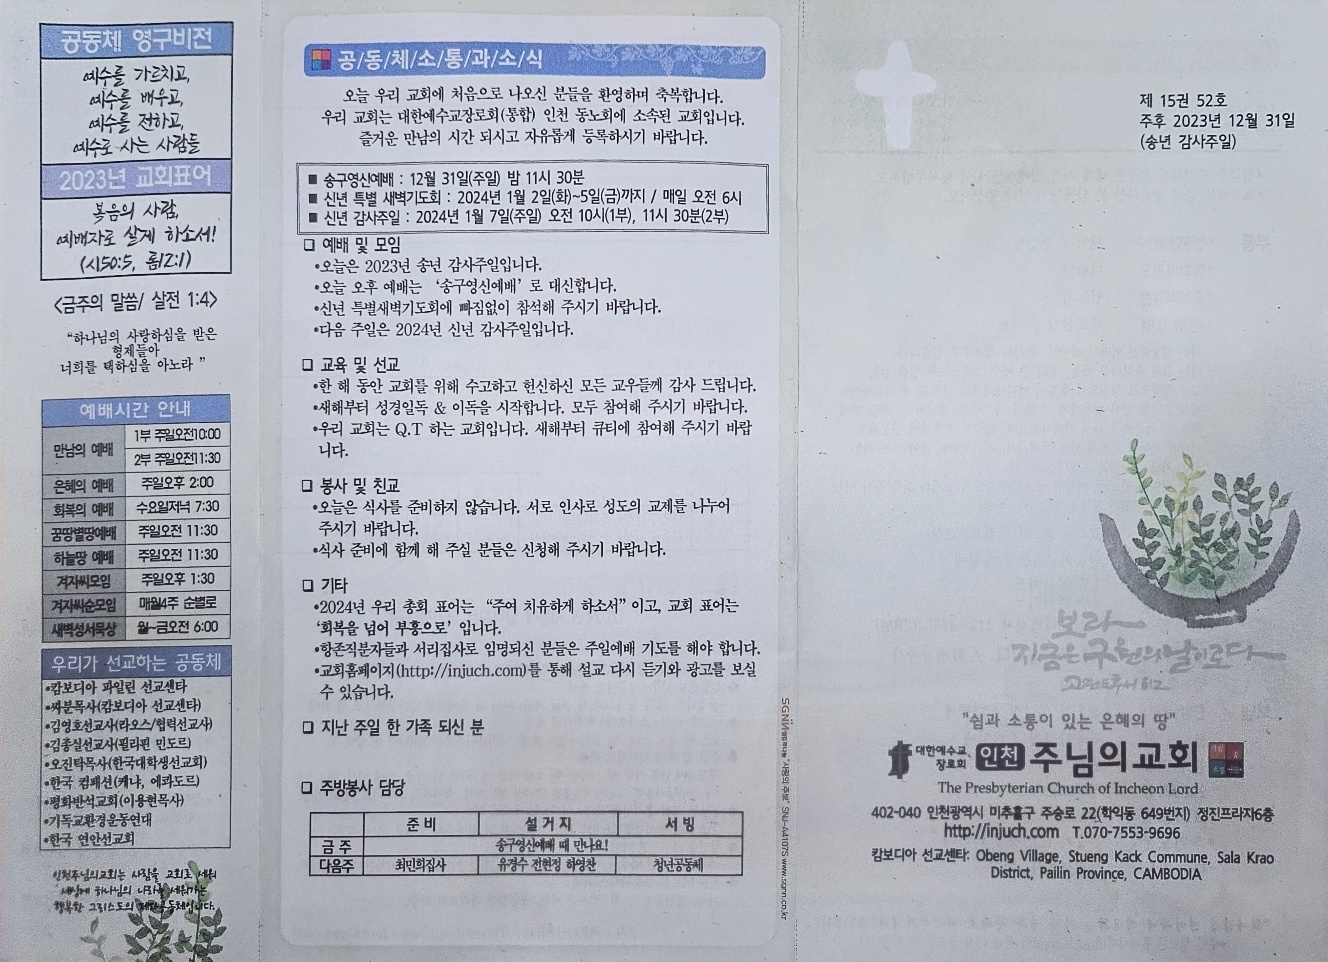 공동체 영구비전
예수를 가르치고,
예수를 배우고,
예수를 전하고,
예수로 사는 사람들
2023년 교회표어
복음의 사람,
예배자로 살게 하소서!
(시50:5, 롬12:1)
<금주의 말씀/ 살전 1:4>
“하나님의 사랑하심을 받은
형제들아
너희를 택하심을 아노라 ”
예배시간 안내
만남의 예배 1부 주일오전10:00
2부 주일오전11:30
은혜의 예배 주일오후 2:00
회복의 예배 수요일저녁 7:30
꿈땅별땅예배 주일오전 11:30
하늘땅 예배 주일오전 11:30
겨자씨모임 주일오후 1:30
겨자씨순모임 매월4주 순별로
새벽성서묵상 월~금오전 6:00
우리가 선교하는 공동체
•캄보디아 파일린 선교센타
•싸분목사(캄보디아 선교센타)
•김영호선교사(라오스/협력선교사)
•김종실선교사(필리핀 민도르)
•오진탁목사(한국대학생선교회)
•한국 컴패션(케냐, 에콰도르)
•평화반석교회(이용현목사)
•기독교환경운동연대
•한국 연안선교회
인천주님의교회는 사람을 교회로 세워
세상에 하나님의 나라를 세워가는
행복한 그리스도의 제자공동체입니다.
공/동/체/소/통/과/소/식
오늘 우리 교회에 처음으로 나오신 분들을 환영하며 축복합니다.
우리 교회는 대한예수교장로회(통합) 인천 동노회에 소속된 교회입니다.
즐거운 만남의 시간 되시고 자유롭게 등록하시기 바랍니다.
■ 송구영신예배 : 12월 31일(주일) 밤 11시 30분
■ 신년 특별 새벽기도회 : 2024년 1월 2일(화)~5일(금)까지 / 매일 오전 6시
■ 신년 감사주일 : 2024년 1월 7일(주일) 오전 10시(1부), 11시 30분(2부)
❏ 예배 및 모임
•오늘은 2023년 송년 감사주일입니다.
•오늘 오후 예배는 ‘송구영신예배’로 대신합니다.
•신년 특별새벽기도회에 빠짐없이 참석해 주시기 바랍니다.
•다음 주일은 2024년 신년 감사주일입니다.
❏ 교육 및 선교
•한 해 동안 교회를 위해 수고하고 헌신하신 모든 교우들께 감사 드립니다.
•새해부터 성경일독 & 이독을 시작합니다. 모두 참여해 주시기 바랍니다.
•우리 교회는 Q.T 하는 교회입니다. 새해부터 큐티에 참여해 주시기 바랍
니다.
❏ 봉사 및 친교
•오늘은 식사를 준비하지 않습니다. 서로 인사로 성도의 교제를 나누어
주시기 바랍니다.
•식사 준비에 함께 해 주실 분들은 신청해 주시기 바랍니다.
❏ 기타
•2024년 우리 총회 표어는 “주여 치유하게 하소서” 이고, 교회 표어는
‘회복을 넘어 부흥으로’ 입니다.
•항존직분자들과 서리집사로 임명되신 분들은 주일예배 기도를 해야 합니다.
•교회홈페이지(http://injuch.com)를 통해 설교 다시 듣기와 광고를 보실
수 있습니다.
❏ 지난 주일 한 가족 되신 분
❏ 주방봉사 담당
준 비 설 거 지 서 빙
금 주 송구영신예배 때 만나요!
다음주 최민희집사 유경수 전현정 하영찬 청년공동체
제 15권 52호
주후 2023년 12월 31일
(송년 감사주일)
보라
지금은 구원의 날이로다
고린도후서 6:2
"쉼과 소통이 있는 은혜의 땅"
대한예수교
장로회
인천 주님의교회
The Presbyterian Church of Incheon Lord
402-040 인천광역시 미추홀구 주승로 22(학익동 649번지) 정진프라자6층
http://injuch.com T.070-7553-9696
캄보디아 선교센타: Obeng Village, Stueng Kack Commune, Sala Krao
District, Pailin Province, CAMBODIA